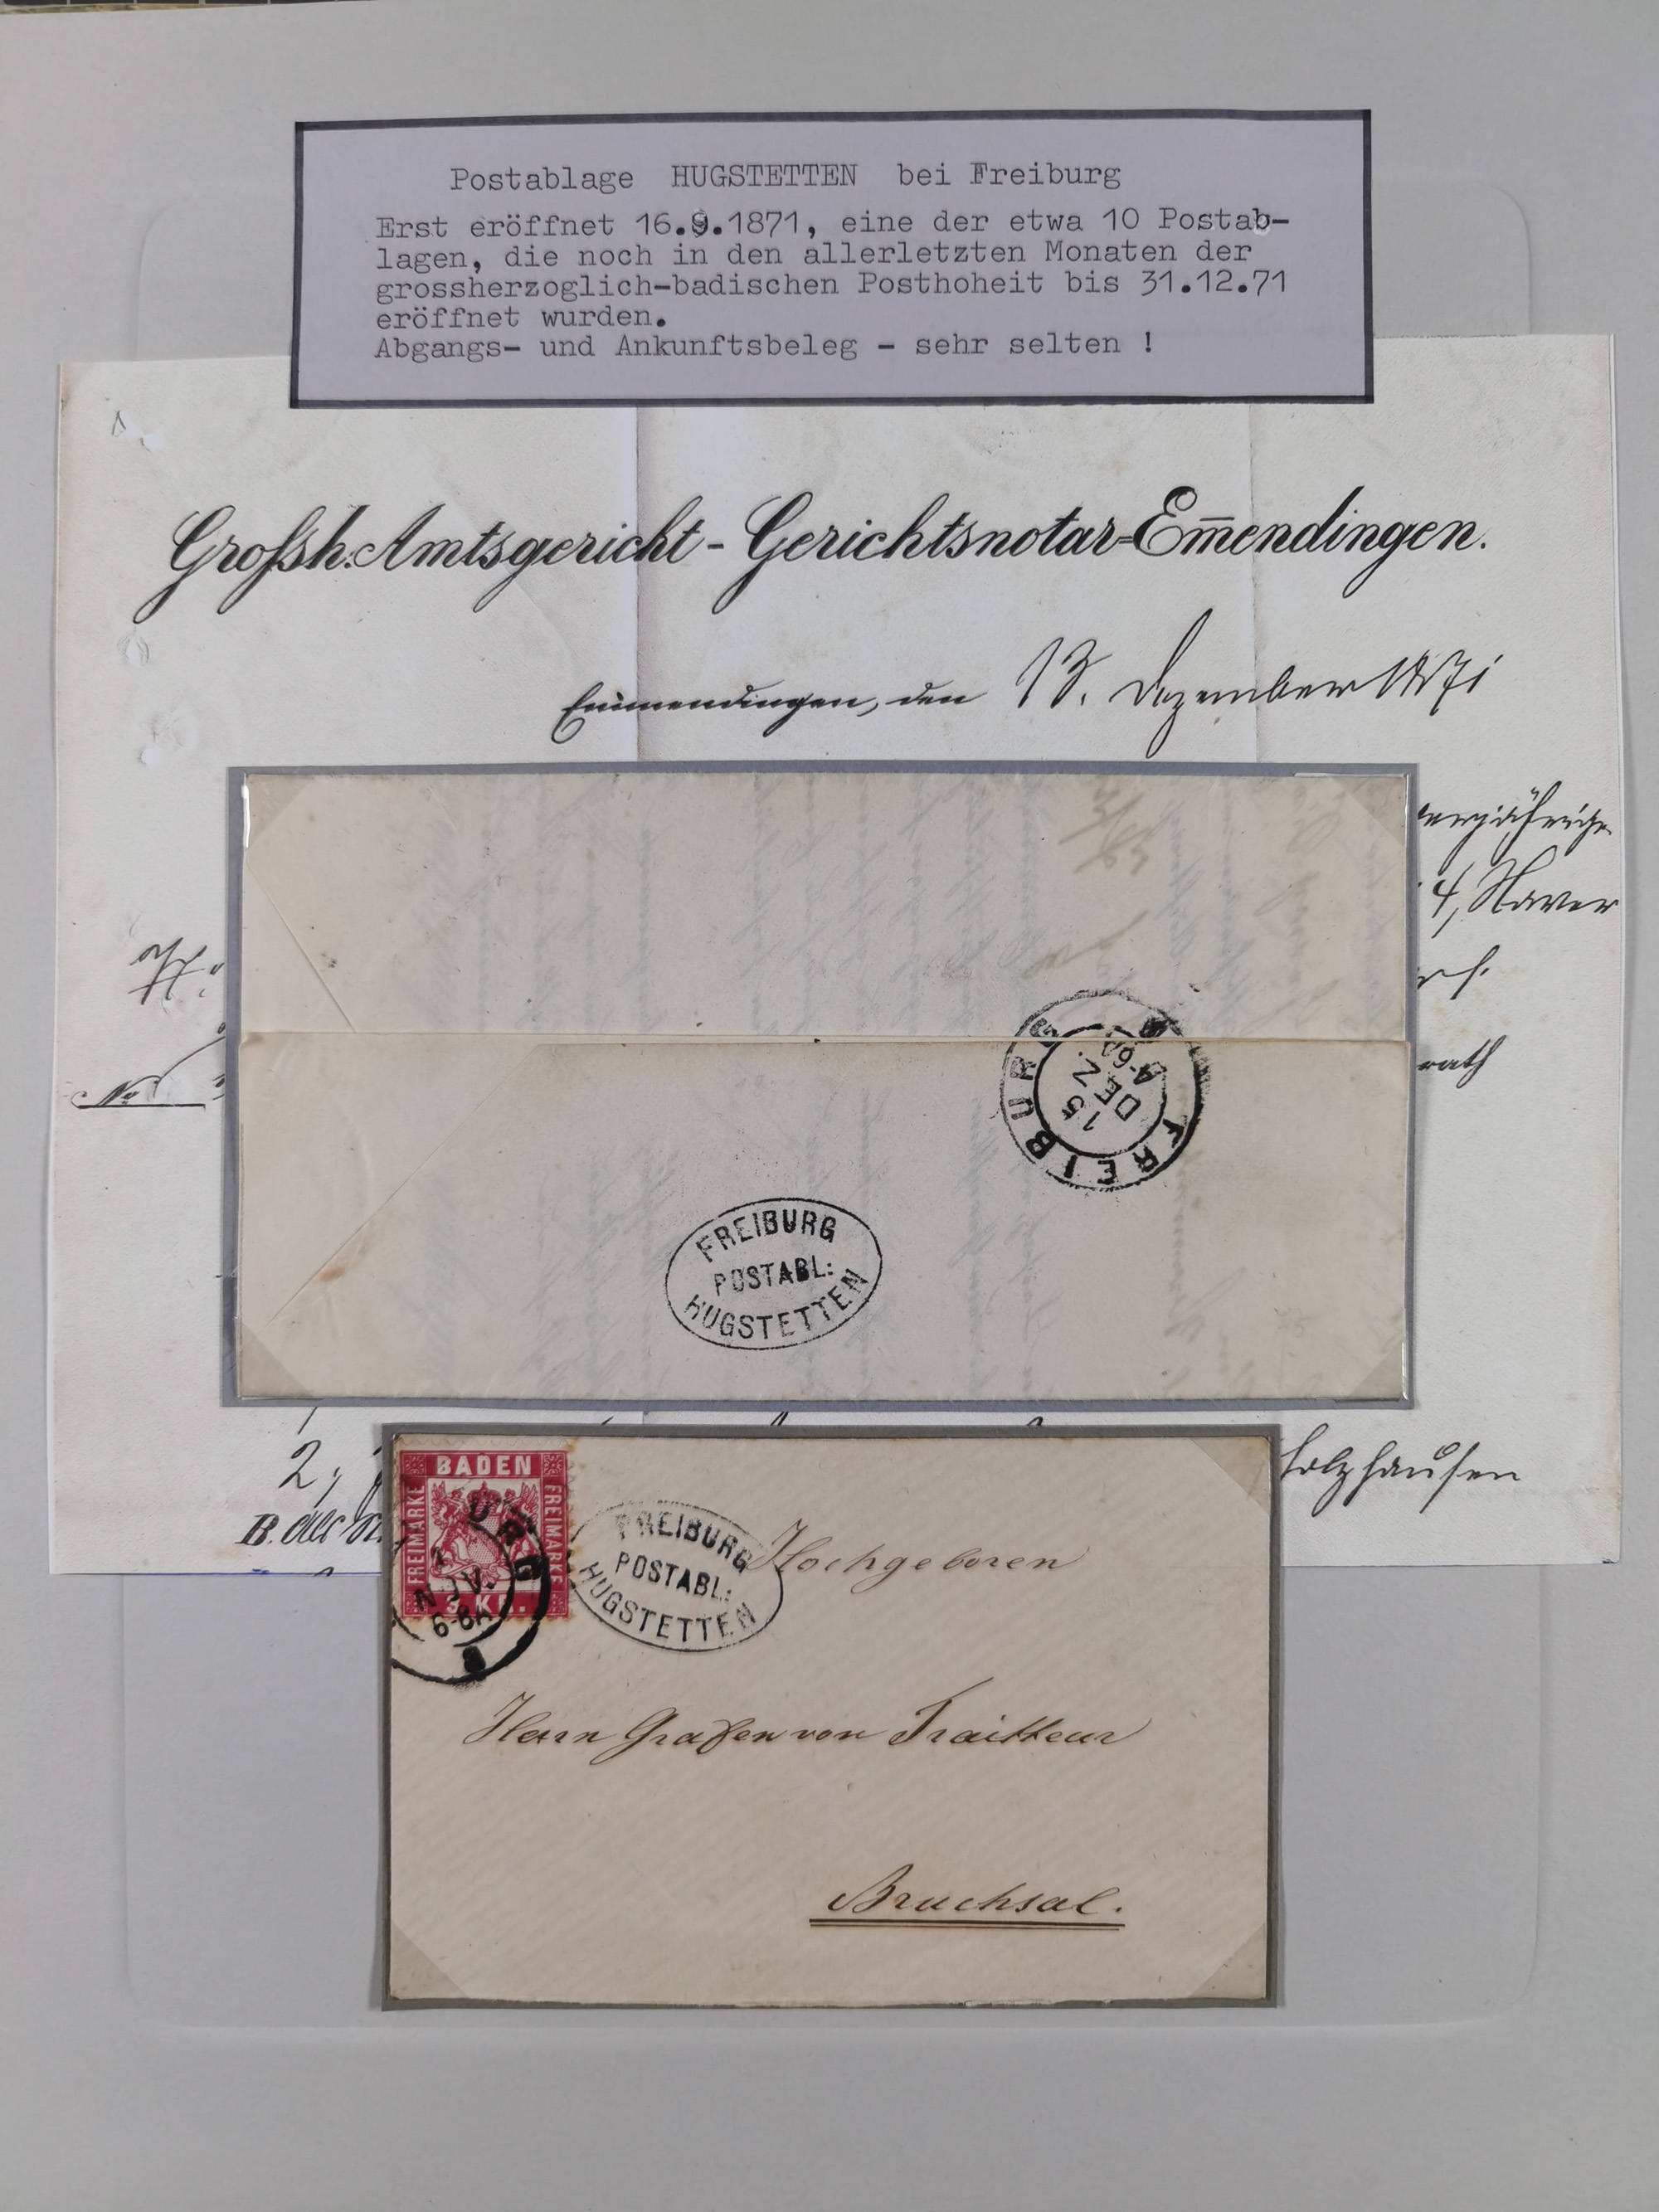 Postablage HUGSTETTEN bei Freiburg
Erst eröffnet 16.9.1871, eine der etwa 10 Postab-
lagen, die noch in den allerletzten Monaten der
grossherzoglich-badischen Posthoheit bis 31.12.71
eröffnet wurden.
Abgangs- und Ankunftsbeleg - sehr selten !
Großh. Amtsgericht - Gerichtsnotar=Em̅endingen.
Emmendingen, den 13. Dezember 1871
4, Xaver
rath
No
FREIBURG
15
DEZ.
4-6A
FREIBURG
POSTABL:
HUGSTETTEN
2,
holzhausen
B.
BADEN
FREIMARKE
FREIMARKE
3 KR.
URG
1
NOV.
6-8A
FREIBURG
POSTABL:
HUGSTETTEN
Hochgeboren
Herrn Grafen von Traitteur
Bruchsal.